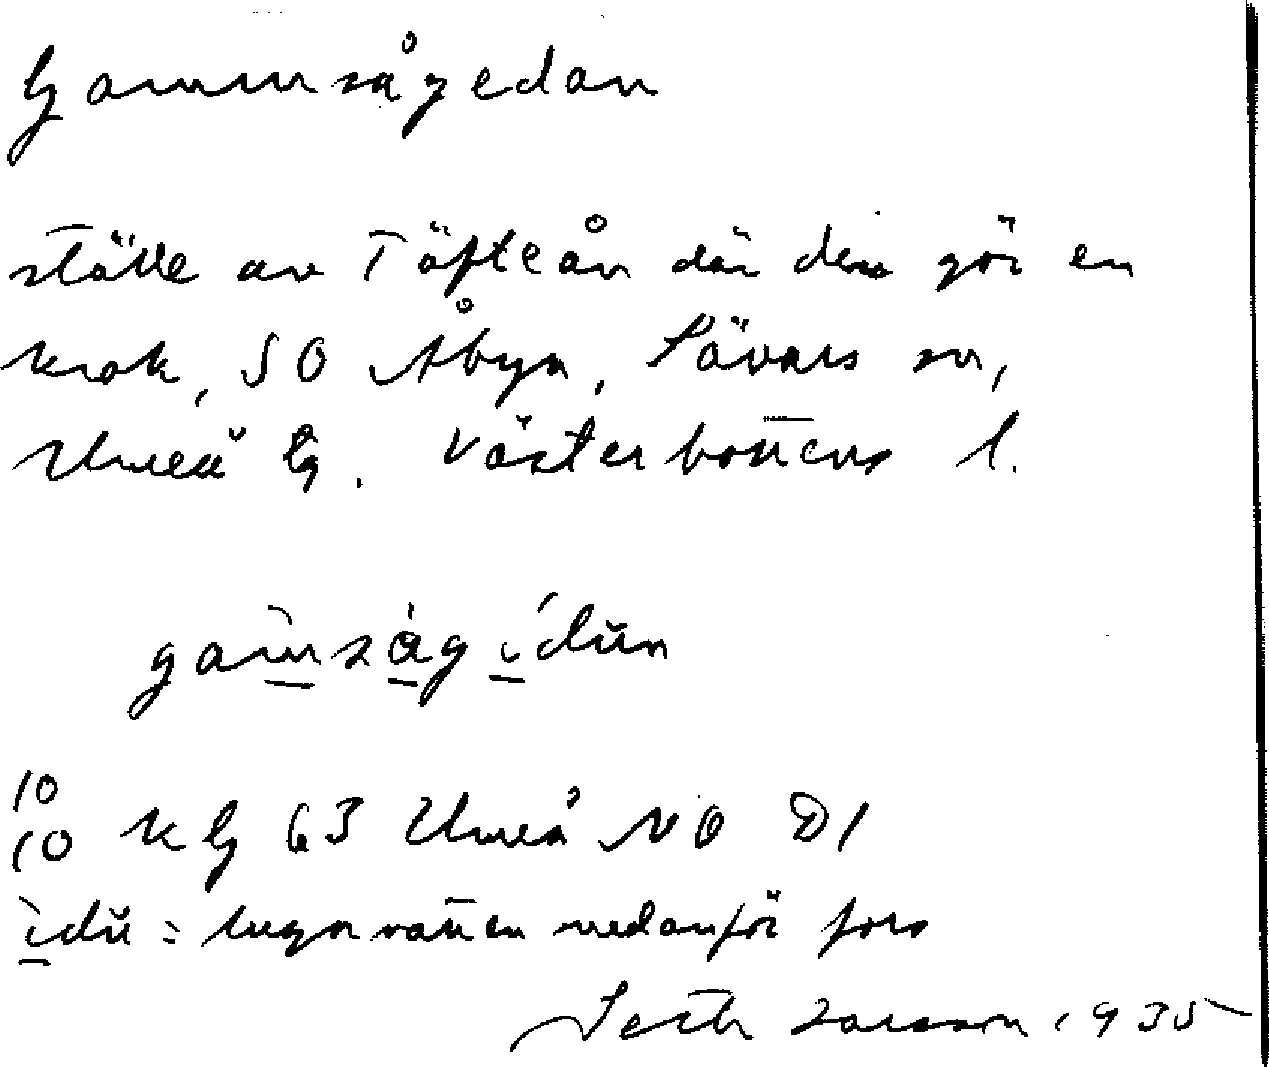 Gammsågedan
ställe av Täfteån där den gör en
krok, SO Åbyn, Sävars sn,
Umeå lg. Västerbottens l.
gamságídun
10
10 klg 63 Umeå NO D1
idu = lugnvatten nedanför fors
Seth Larsson 1935